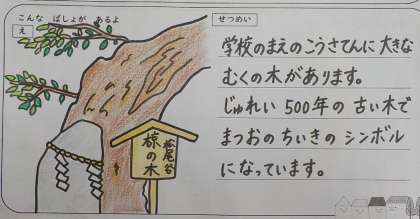 こんな ばしょが あるよ
え
松尾谷
椋の木
せつめい
学校のまえのこうさてんに大きな
むくの木があります。
じゅれい 500年の 古い木で
まつおのちいきの シンボル
になっています。